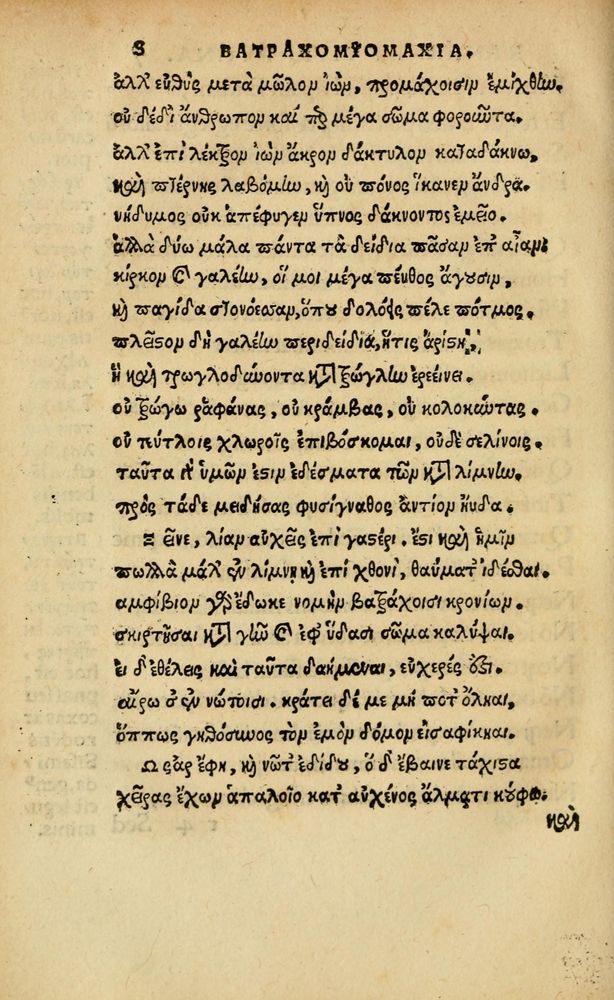 8 ΒΑΤΡΑΧΟΜΥΟΜΑΧΙΑ.
ἀλλ' εὐθὺς μετὰ μῶλον ἰὼν, προμάχοισιν ἐμίχθην.
οὐ δέδι' ἄνθρωπον καί περ μέγα σῶμα φοροῦντα.
ἀλλ' ἐπὶ λέκτρον ἰὼν ἄκρον δάκτυλον καταδάκνω,
καὶ πτέρνης λαβόμην, καὶ οὐ πόνος ἵκανεν ἄνδρα.
νήδυμος οὐκ ἀπέφυγεν ὕπνος δάκνοντος ἐμεῖο.
ἀλλὰ δύω μάλα πάντα τὰ δείδια πᾶσαν ἐπ' αἶαν.
κίρκον καὶ γαλέην, οἵ μοι μέγα πένθος ἄγουσιν,
καὶ παγίδα στονόεσσαν, ὅπου δολόεις πέλε πότμος.
πλεῖστον δὴ γαλέην περιδείδια, ἥτις ἀρίστη,
ἣ καὶ τρωγλοδύνοντα κατὰ τρώγλην ἐρεείνει.
οὐ τρώγω ῥαφάνας, οὐ κράμβας, οὐ κολοκύντας.
οὐ πύτλοις χλωροῖς ἐπιβόσκομαι, οὐδὲ σελίνοις.
ταῦτα γὰρ ὑμῶν ἐστιν ἐδέσματα τῶν κατὰ λίμνην.
πρὸς τάδε μειδήσας φυσίγναθος ἀντίον ηὔδα.
Ξεῖνε, λίαν αὐχεῖς ἐπὶ γαστέρι. ἔστι καὶ ἡμῖν
πολλὰ μάλ' ἐν λίμνῃ καὶ ἐπὶ χθονὶ, θαύματ' ἰδέσθαι.
ἀμφίβιον γὰρ ἔδωκε νομὴν βατράχοισι κρονίων.
σκιρτῆσαι κατὰ γῆν καὶ ἐφ' ὕδασι σῶμα καλύψαι.
εἰ δ' ἐθέλεις καὶ ταῦτα δαήμεναι, εὐχερές ἐστι.
αἴρω σ' ἐν νώτοισι. κράτει δέ με μή ποτ' ὄληαι,
ὅππως γηθόσυνος τὸν ἐμὸν δόμον εἰσαφίκηαι.
Ως ἄρ' ἔφη, καὶ νῶτ' ἐδίδου, ὁ δ' ἔβαινε τάχιστα
χεῖρας ἔχων ἁπαλοῖο κατ' αὐχένος ἅλματι κούφῳ.
καὶ